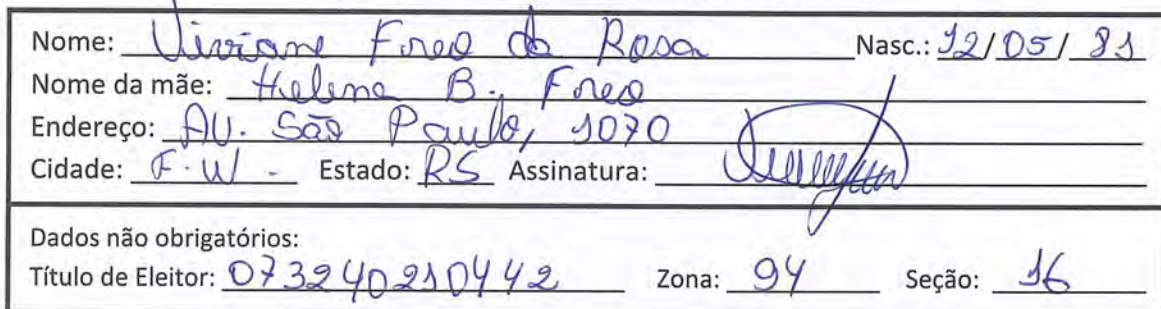 Nome: Viviane Freo da Rosa Nasc.: 12/05/81
Nome da mãe: Helena B. Freo
Endereço: AV. São Paulo, 1070
Cidade: F.W. Estado: RS Assinatura:
Dados não obrigatórios:
Título de Eleitor: 073240210442 Zona: 94 Seção: 16